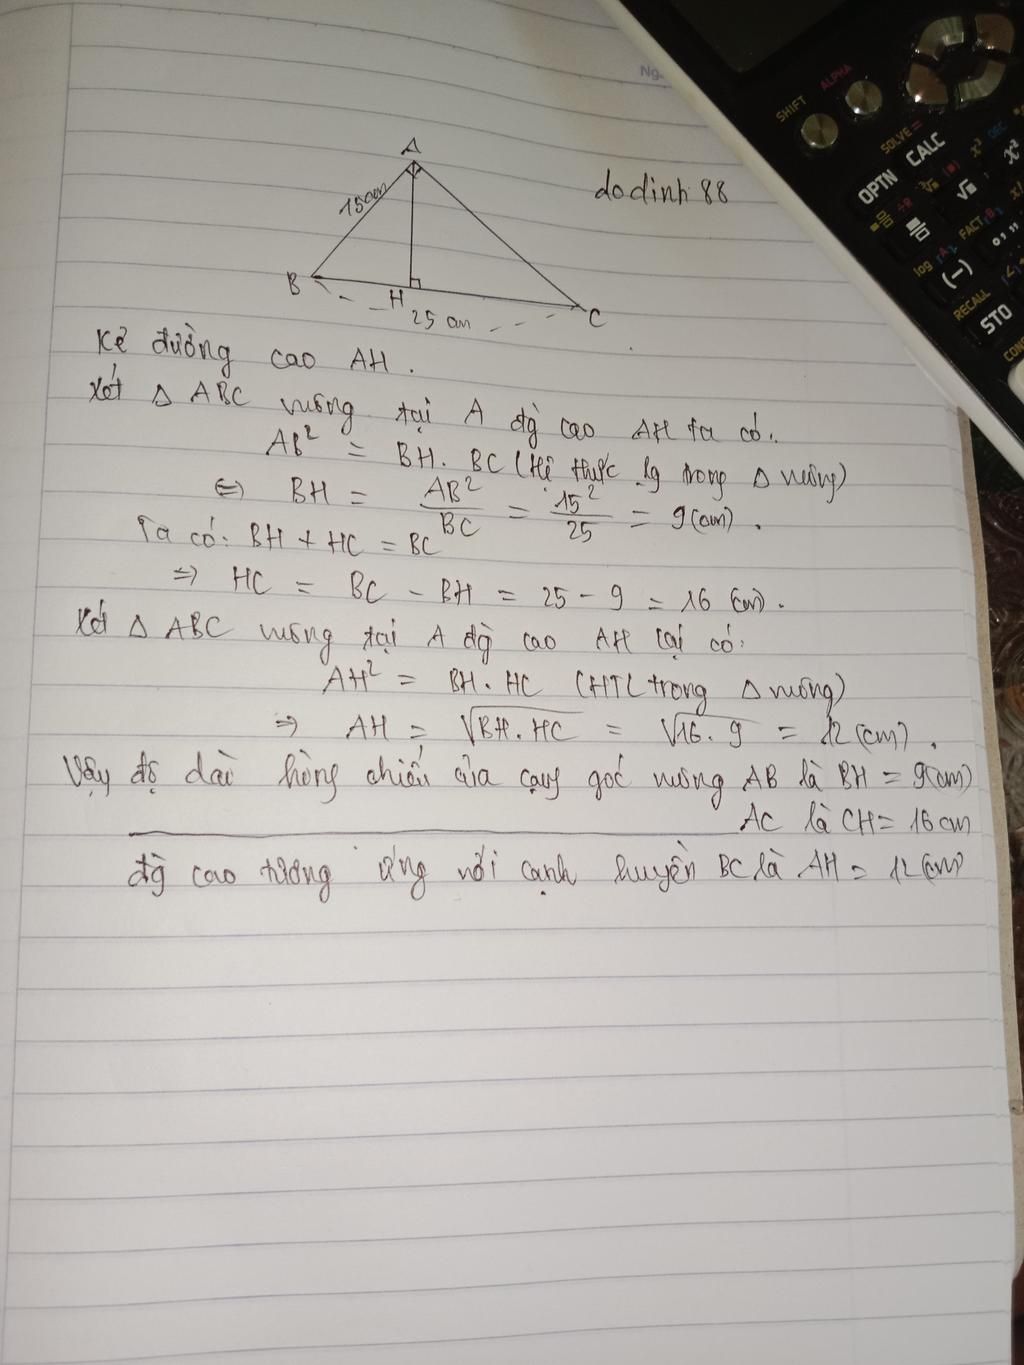 Ng
SHIFT
ALPHA
SOLVE =
OPTN
CALC
FACT
log
(−)
RECALL
STO
A
dodinh 88
15cm
B
H
C
25 cm
Kẻ đường cao AH.
Xét Δ ABC vuông tại A đg cao AH ta có:
AB² = BH. BC (Hệ thức lg trong Δ vuông)
⇔ BH = AB²/BC = 15²/25 = 9(cm).
Ta có: BH + HC = BC
⇒ HC = BC − BH = 25 − 9 = 16 (cm).
Xét Δ ABC vuông tại A đg cao AH lại có:
AH² = BH. HC (HTL trong Δ vuông)
⇒ AH = √BH.HC = √16.9 = 12 (cm).
Vậy độ dài hình chiếu của cạnh góc vuông AB là BH = 9(cm)
AC là CH = 16 cm
đg cao tương ứng với cạnh huyền BC là AH = 12 (cm)